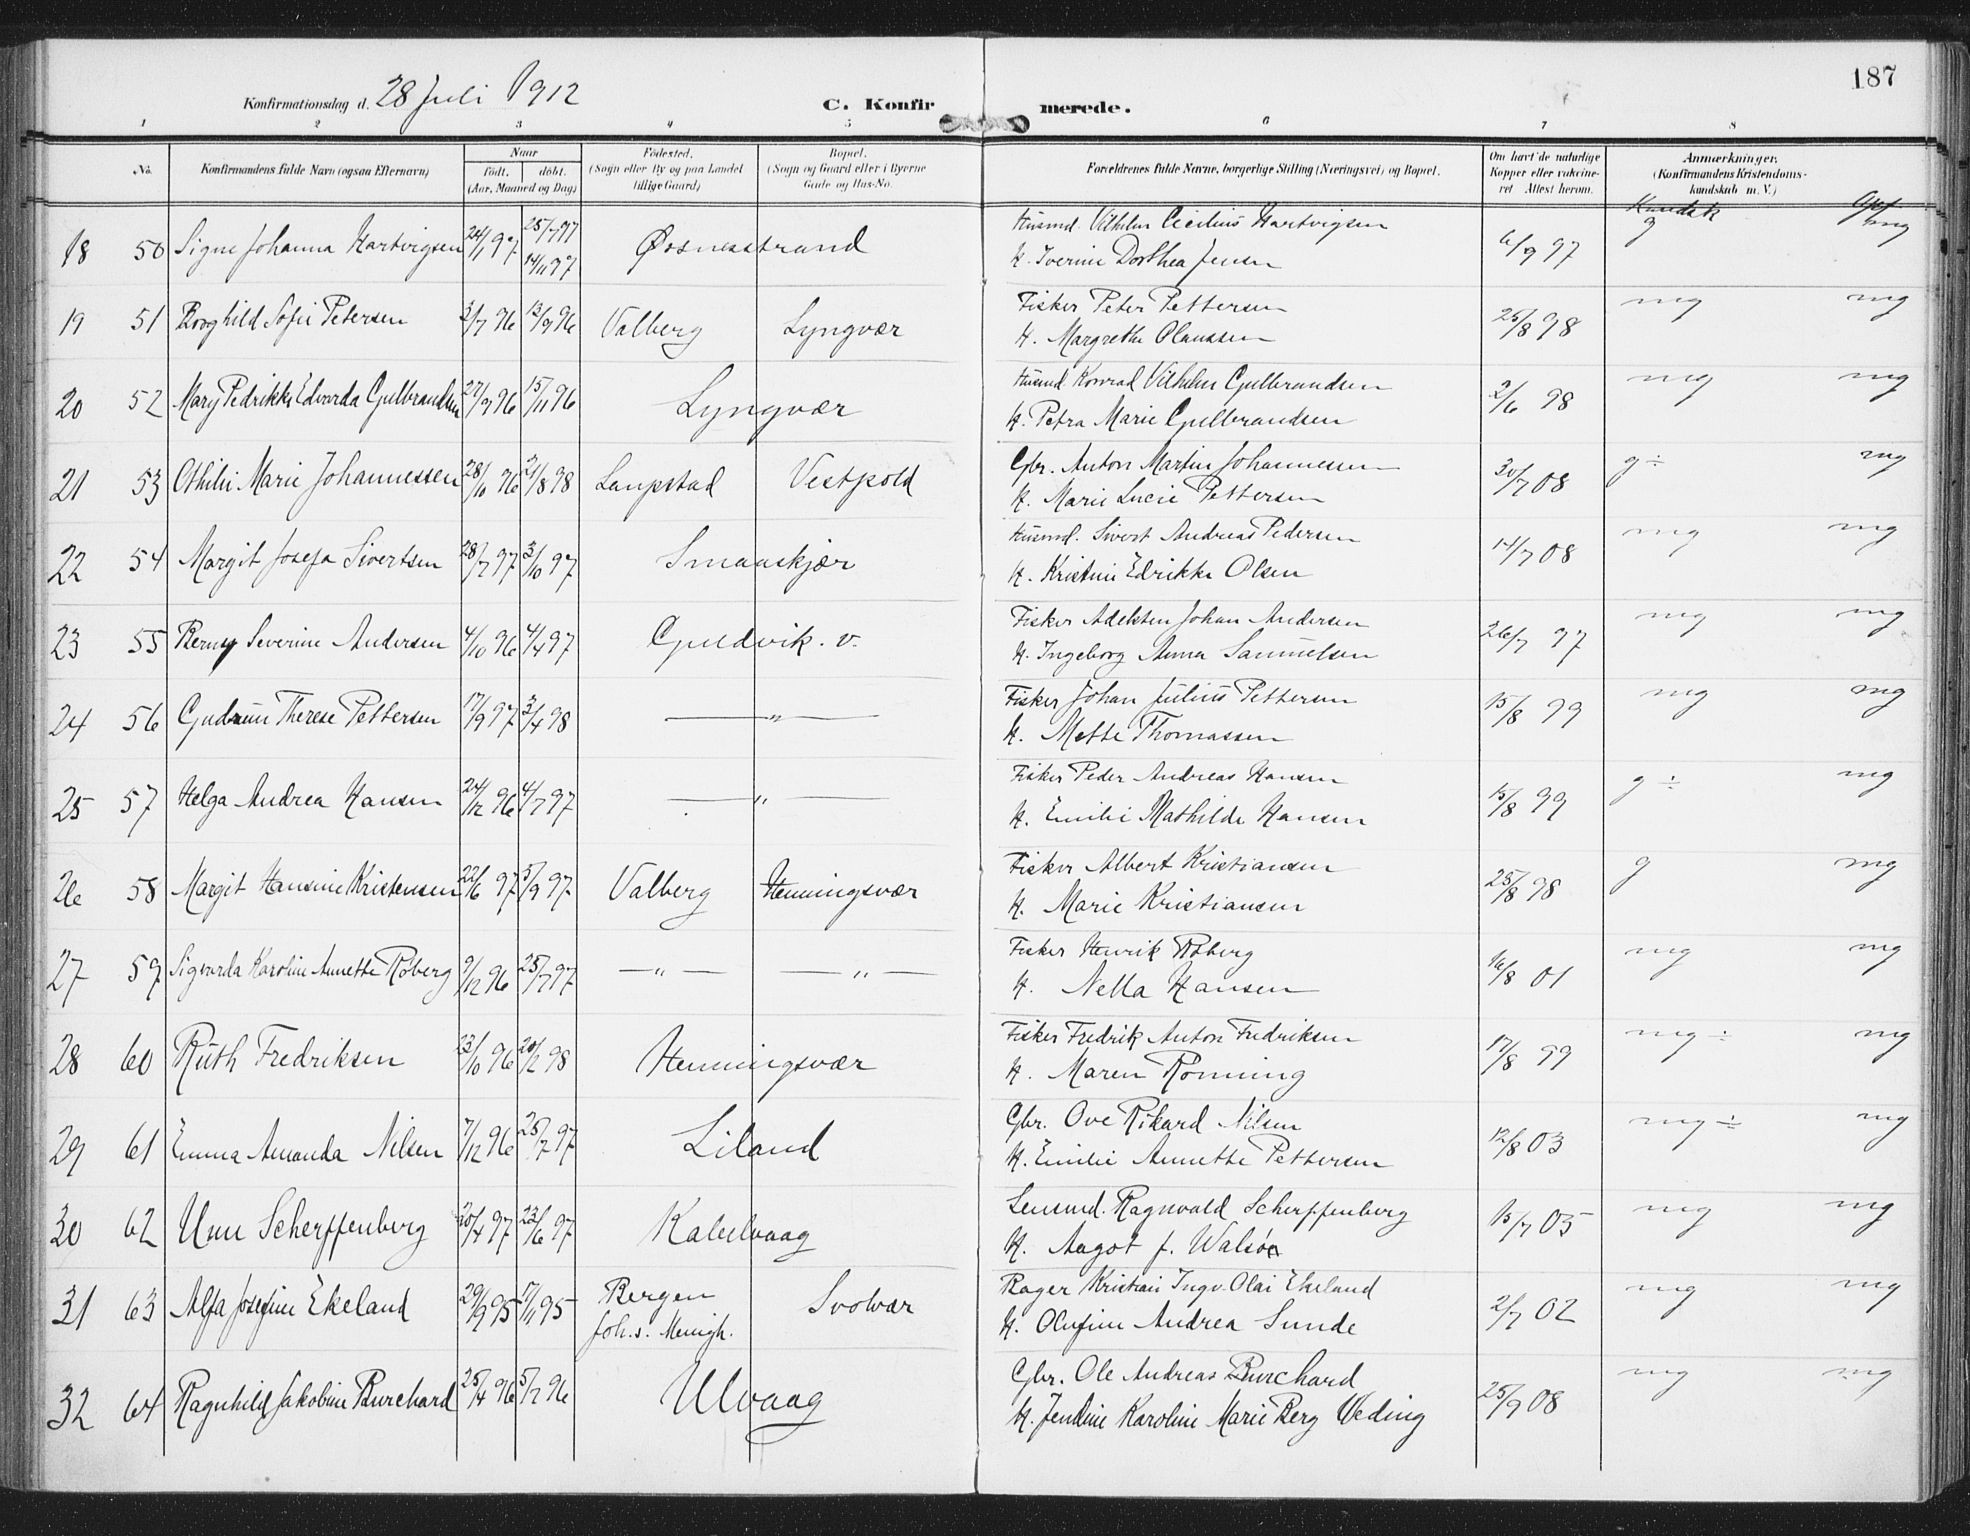 187
Konfirmationsdag d. 28 Juli 1912
C. Konfirmerede.
1 2 3 4 5 6 7 8
No. Konfirmandens fulde Navn (ogsaa Efternavn) Naar født. døbt. (Aar, Maaned og Dag) Fødested. (Sogn eller By og paa Landet tillige Gaard) Bopæl. (Sogn og Gaard eller i Byerne Gade og Hus-No. Forældrenes fulde Navne, borgerlige Stilling (Næringsvei) og Bopæl. Om havt de naturlige Kopper eller vakcineret Attest herom. Anmærkninger. (Konfirmandens Kristendomskundskab m. V.)
Kundsk
18 50 Signe Johanna Hartvigsen 24/1 97 25/7 97 14/11 97 Øosnesstrand Husmd. Vilhelm Cecilius Hartvigsen 6/9 97 g mg
H. Iverine Dorthea Jensen
19 51 Borghild Sofie Petersen 3/7 96 13/9 96 Valberg Lyngvær Fisker Peter Pettersen 25/8 98 mg mg
H. Margrethe Olaussen
20 52 Mary Pedrikke Edvarda Gulbrandsen 27/9 96 15/11 96 Lyngvær Husmd Konrad Vilhelm Gulbrandsen 2/6 98 mg mg
H. Petra Marie Gulbrandsen
21 53 Othilie Marie Johannessen 28/10 96 21/8 98 Laupstad Vestpold Gbr. Anton Martin Johannessen 30/7 08 g ÷ mg
H. Marie Lucie Pettersen
22 54 Margit Josefa Sivertsen 28/7 97 3/10 97 Smaaskjær Husmd. Sivert Andreas Pedersen 14/7 08 mg mg
H. Kristine Edrikke Olsen
23 55 Berny Severine Andersen 4/10 96 4/4 97 Guldvik. v. Fisker Adelsten Johan Andersen 26/7 97 mg mg
H. Ingeborg Anna Samuelsen
24 56 Gudrun Therese Pettersen 17/9 97 3/4 98 — " — Fisker Johan Julius Pettersen 15/8 99 mg mg
H. Mette Thomassen
25 57 Helga Andrea Hansen 24/12 96 4/7 97 — " — Fisker Peder Andreas Hansen 15/8 99 g ÷ mg
H. Emilie Mathilde Hansen
26 58 Margit Hansine Kristensen 22/6 97 5/9 97 Valberg Henningsvær Fisker Albert Kristiansen 25/8 98 g mg
H. Marie Kristiansen
27 59 Sigvarda Karoline Annette Røberg 9/12 96 25/7 97 — " — — " — Fisker Henrik Røberg 16/8 01 mg mg
H. Nella Hansen
28 60 Ruth Fredriksen 23/10 96 20/2 98 Henningsvær Fisker Fredrik Anton Fredriksen 17/8 99 mg ÷ mg
H. Maren Rønning
29 61 Emma Amanda Nilsen 7/12 96 25/7 97 Liland Gbr. Ove Rikard Nilsen 12/8 03 mg ÷ mg
H. Emilie Annette Pettersen
30 62 Unn Scherffenberg 20/4 97 23/6 97 Kabelvaag Lensmd. Ragnvald Scherffenberg 15/7 05 mg mg
H. Aagot f. Walsøe
31 63 Alfa Josefine Ekeland 29/9 95 17/11 95 Bergen Svolvær Bager Kristian Ingv. Olai Ekeland 2/7 02 mg mg
Joh.s. Menigh. H. Olufine Andrea Sunde
32 64 Ragnhild Jakobine Burchard 25/4 96 5/7 96 Ulvaag Gbr. Ole Andreas Burchard 25/9 08 mg mg
H. Jendine Karoline Marie Berg Weding